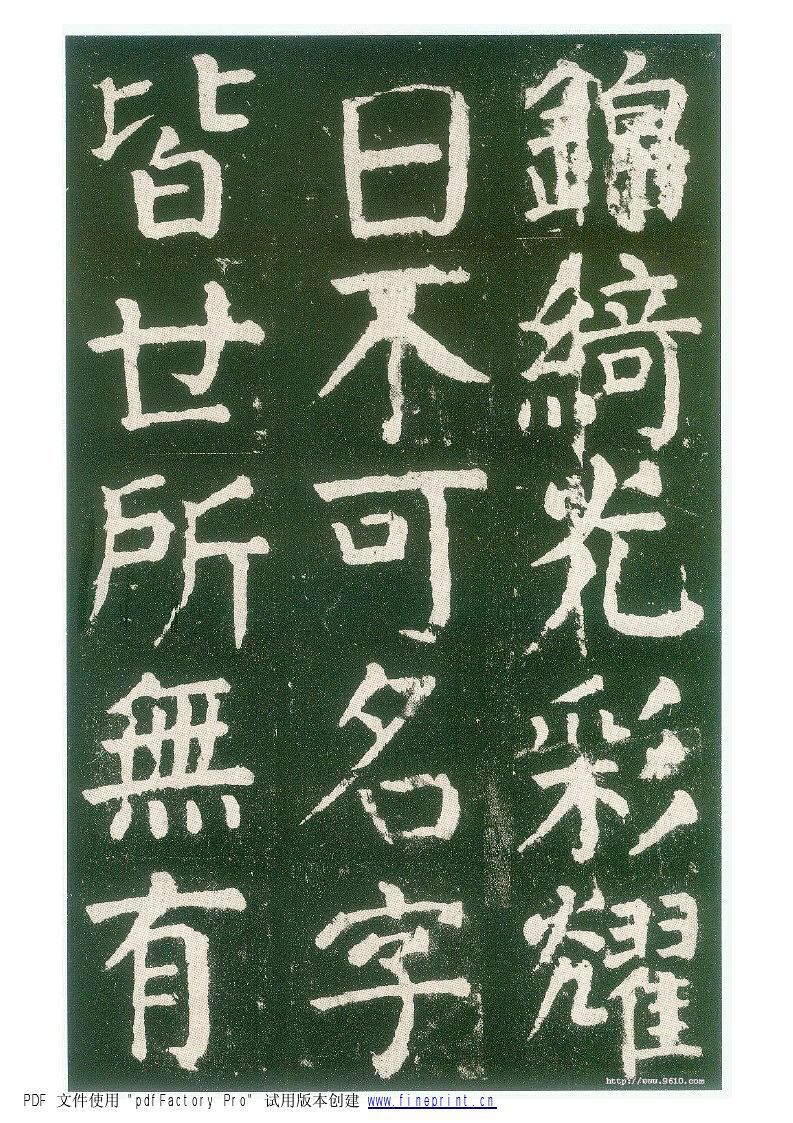 錦綺光彩耀
日不可名字
皆世所無有
http://www.9610.com
PDF 文件使用 "pdfFactory Pro" 试用版本创建 www.fineprint.cn